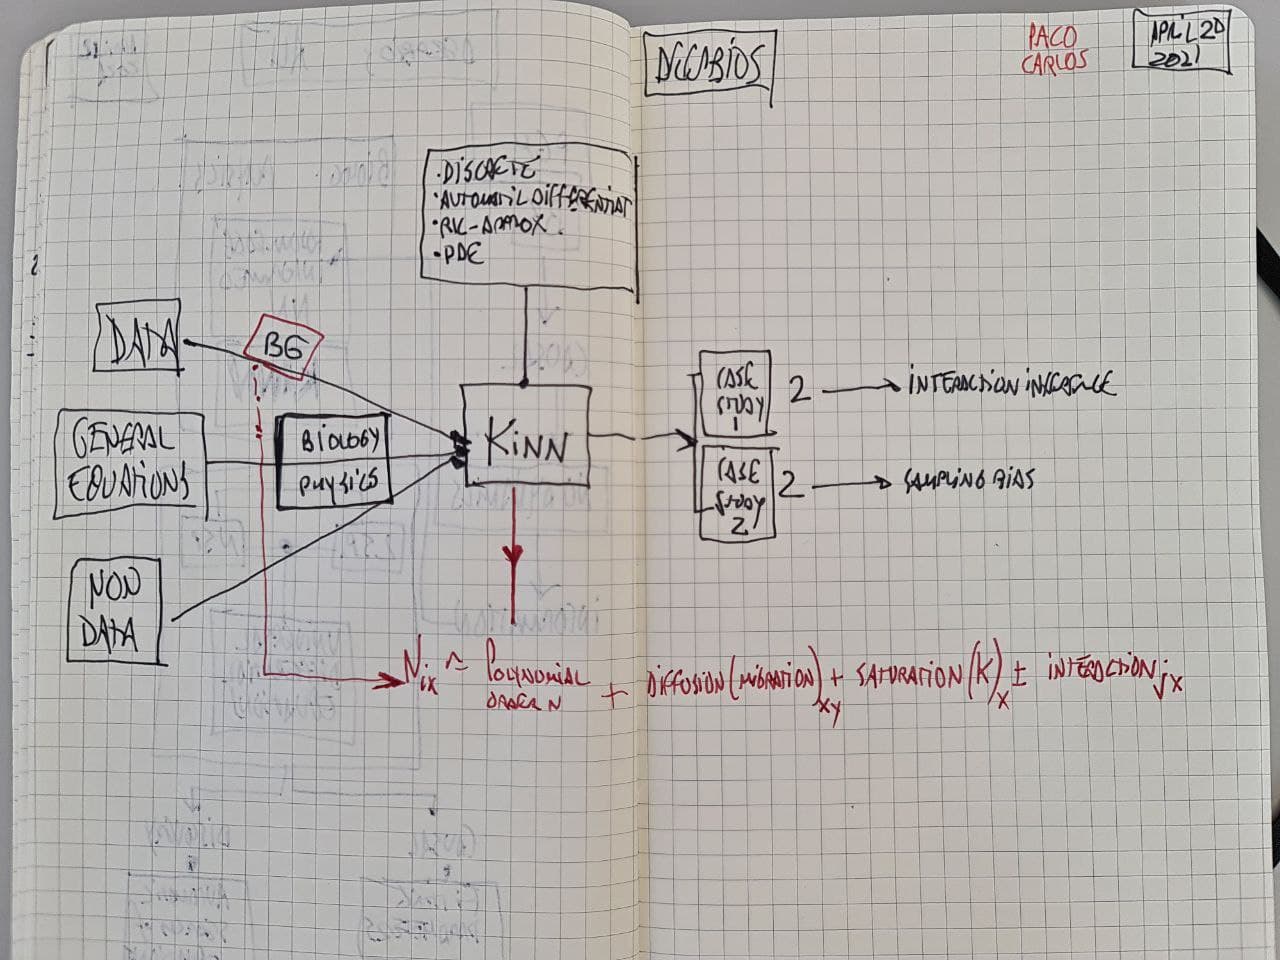 PACO
CARLOS
APRIL 20
2021
• DISCRETE
• AUTOMATIC DIFFERENTIAT
• RK-APPROX.
• PDE
DATA
BG
GENERAL
EQUATIONS
BIOLOGY
PHYSICS
KiNN
NON
DATA
CASE
STUDY
1
2 → INTERACTION INFERENCE
CASE
STUDY
2
2 → SAMPLING BIAS
N ix ~ POLYNOMIAL
ORDER N
+ DIFFUSION (MIGRATION) xy + SATURATION (K) x ± INTERACTION jx